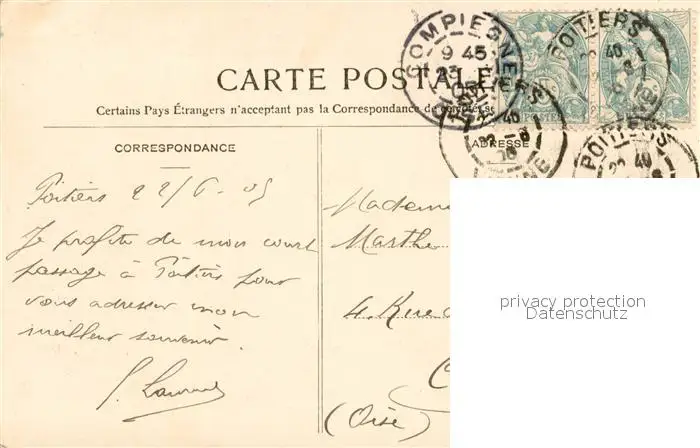 CARTE POSTALE
Certains Pays Étrangers n'acceptant pas la Correspondance de
CORRESPONDANCE
ADRESSE
COMPIEGNE
9 45
OISE
POITIERS
22 40
POITIERS
40
22 - 6
VIENNE
POITIERS
22 40
POSTES
Poitiers 22/6 05
Je profite de mon court
passage à Poitiers pour
vous adresser mon
meilleur souvenir.
Madame
Marthe
4. Rue
C
(Oise)
privacy protection
Datenschutz